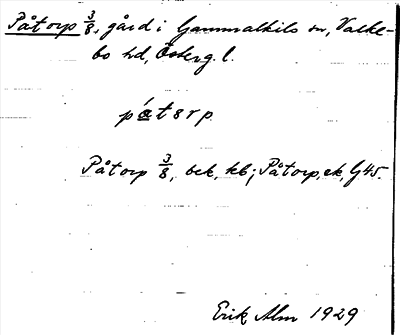 Påtorp 3/8, gård i Gammalkils sn, Valke-
bo hd, Österg. l.
påtərp
Påtorp 3/8, bek, kb; Påtorp, ek, G45.
Erik Alm 1929